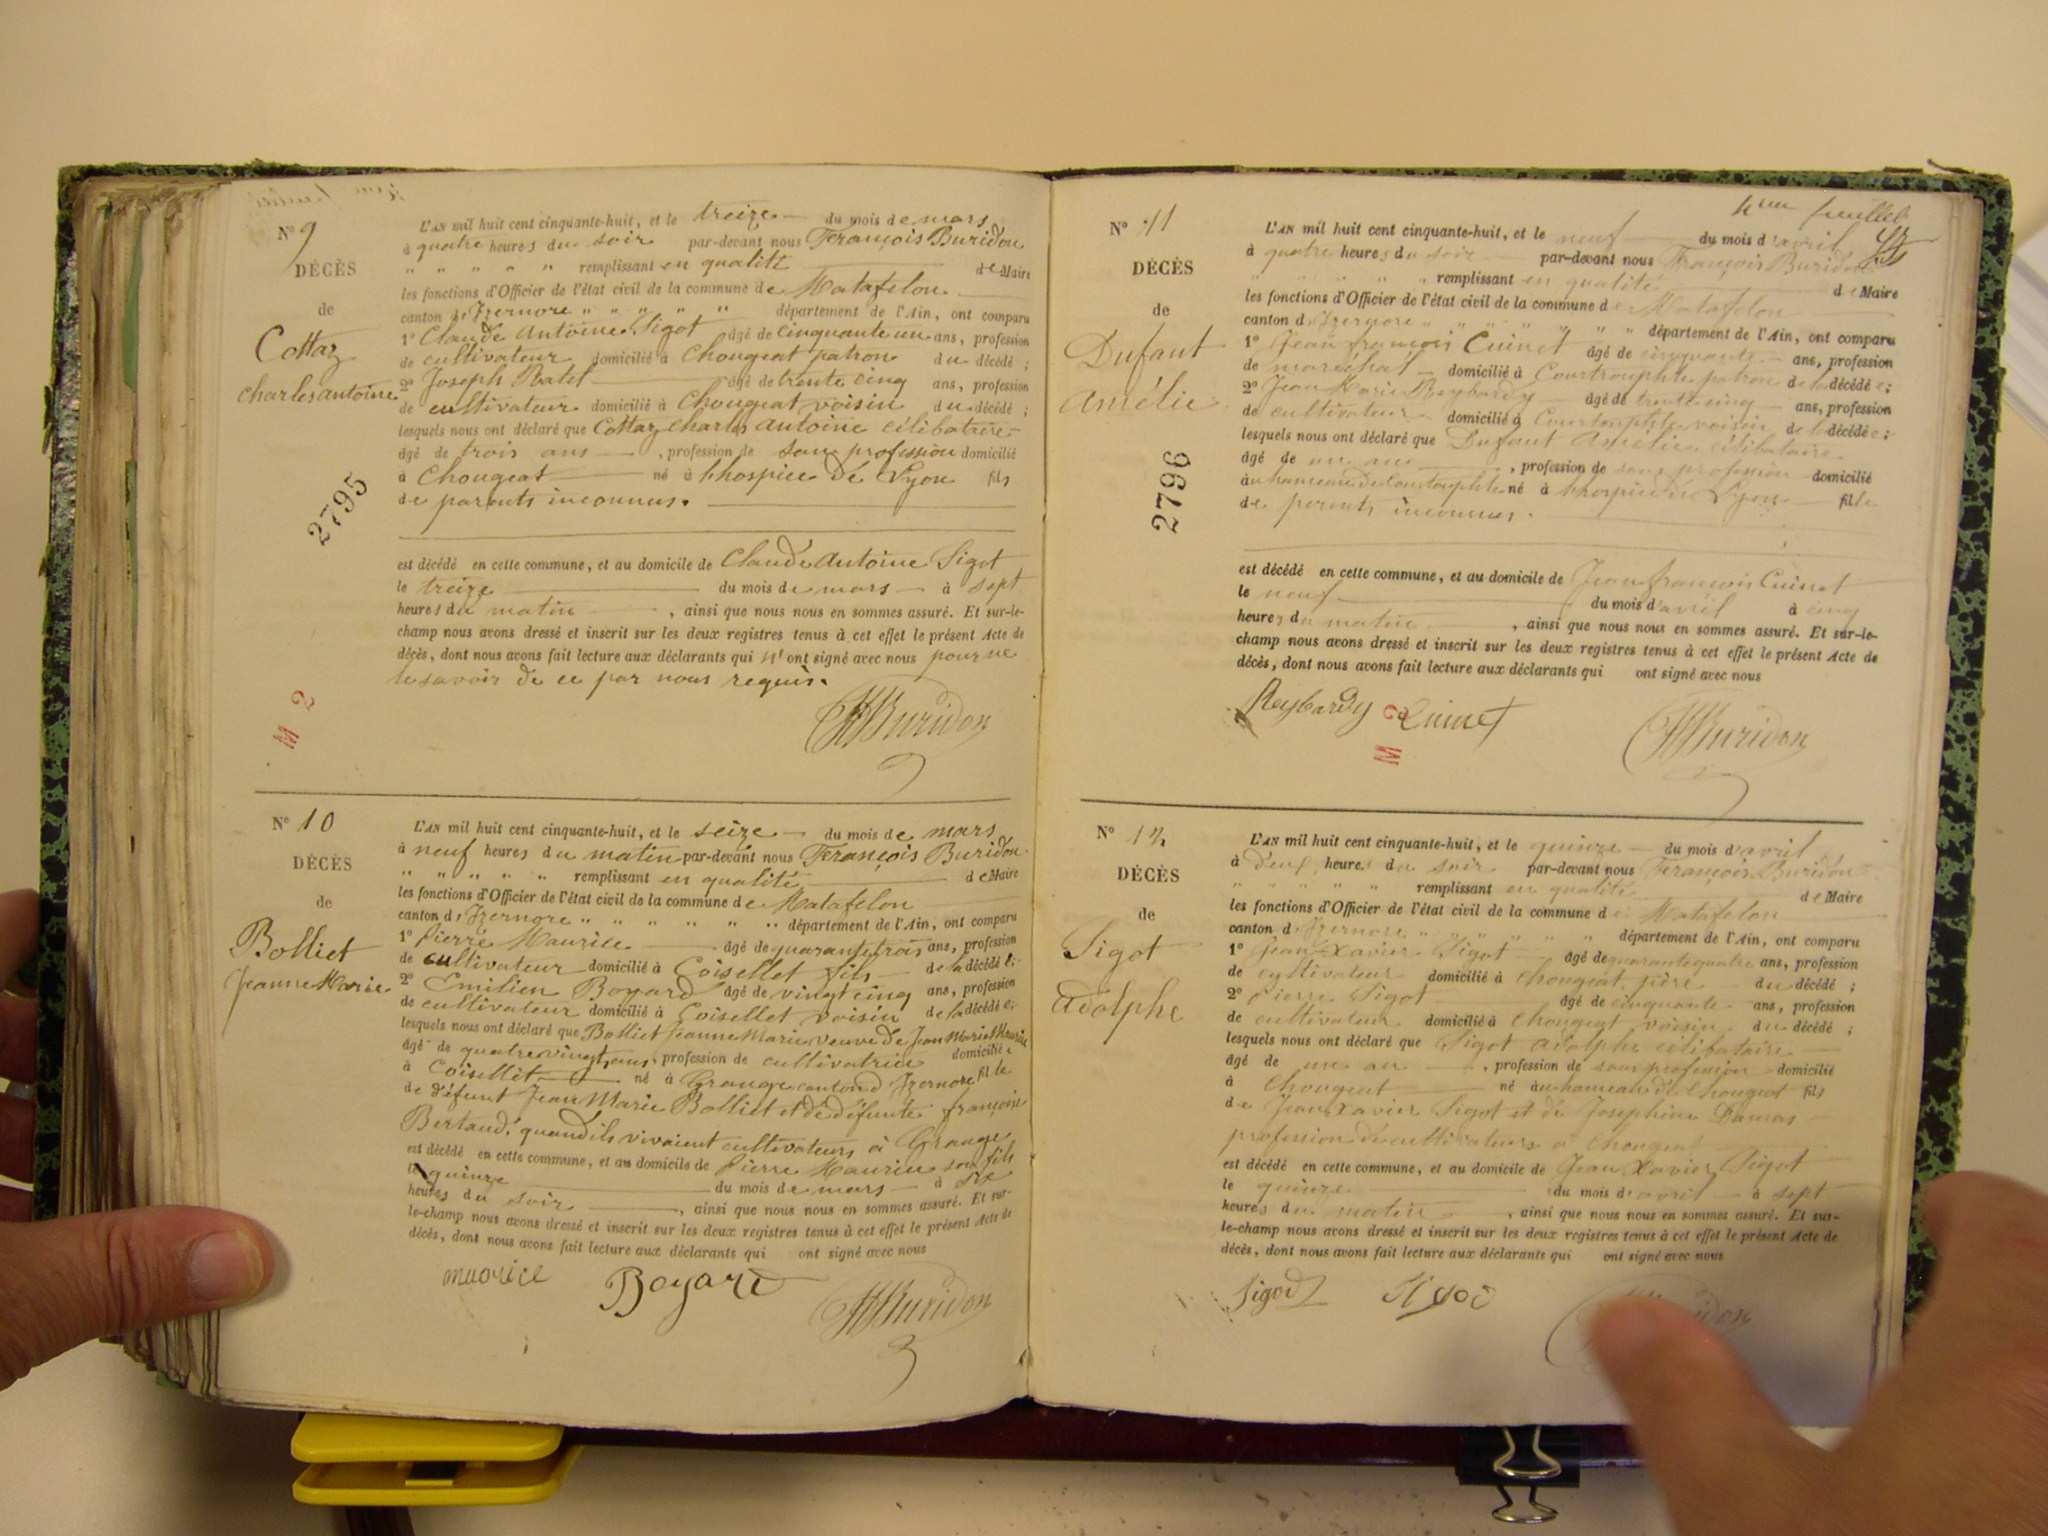 N° 9
DÉCÈS
de
Cottaz
charles antoine
2795
M 2
L'AN mil huit cent cinquante-huit, et le treize du mois de mars
à quatre heures du soir par-devant nous François Buridon
" " " " " remplissant en qualité de Maire
les fonctions d'Officier de l'état civil de la commune de Matafelon
canton d'Izernore " " " " " département de l'Ain, ont comparu
1° Claude Antoine Sigot âgé de cinquante un ans, profession
de cultivateur domicilié à Chougeat patron du décédé ;
2° Joseph Ratet âgé de trente cinq ans, profession
de cultivateur domicilié à Chougeat voisin du décédé ;
lesquels nous ont déclaré que Cottaz Charles Antoine célibataire
âgé de trois ans , profession de sans profession domicilié
à Chougeat né à l'hospice de Lyon fils
de parents inconnus.
est décédé en cette commune, et au domicile de Claude Antoine Sigot
le treize du mois de mars à sept
heures du matin , ainsi que nous nous en sommes assuré. Et sur-le-
champ nous avons dressé et inscrit sur les deux registres tenus à cet effet le présent Acte de
décès, dont nous avons fait lecture aux déclarants qui n' ont signé avec nous pour ne
le savoir de ce par nous requis.
Buridon
N° 10
DÉCÈS
de
Bolliet
Jeanne Marie
L'AN mil huit cent cinquante-huit, et le seize du mois de mars
à neuf heures du matin par-devant nous François Buridon
" " " " " remplissant en qualité de Maire
les fonctions d'Officier de l'état civil de la commune de Matafelon
canton d'Izernore " " " " " " département de l'Ain, ont comparu
1° Pierre Maurice âgé de quarante trois ans, profession
de cultivateur domicilié à Coisellet fils de la décédée ;
2° Emilien Boyard âgé de vingt cinq ans, profession
de cultivateur domicilié à Coisellet voisin de la décédée ;
lesquels nous ont déclaré que Bolliet Jeanne Marie veuve de Jean Marie Maurice
âgé de quatre vingt ans, profession de cultivatrice domiciliée
à Coisellet né à Grange canton d'Izernore fille
de défunt Jean Marie Bolliet et de défunte françoise
Bertand, quand ils vivaient cultivateurs à Grange
est décédé en cette commune, et au domicile de Pierre Maurice son fils
le quinze du mois de mars à six
heures du soir , ainsi que nous nous en sommes assuré. Et sur-
le-champ nous avons dressé et inscrit sur les deux registres tenus à cet effet le présent Acte de
décès, dont nous avons fait lecture aux déclarants qui ont signé avec nous
maurice Boyard Buridon
4me feuillet
N° 11
DÉCÈS
de
Dufaut
Amélie
2796
L'AN mil huit cent cinquante-huit, et le neuf du mois d'avril
à quatre heures du soir par-devant nous François Buridon
" " " " " remplissant en qualité de Maire
les fonctions d'Officier de l'état civil de la commune de Matafelon
canton d'Izernore " " " " " " département de l'Ain, ont comparu
1° Jean françois Cuinet âgé de cinquante ans, profession
de maréchal domicilié à Courtouphle patron de la décédée ;
2° Jean Marie Reybardy âgé de trente cinq ans, profession
de cultivateur domicilié à Courtouphle voisin de la décédée ;
lesquels nous ont déclaré que Dufaut Amélie célibataire
âgé de un an , profession de sans profession domicilié
au hameau de Courtouphle né à l'hospice de Lyon fille
de parents inconnus.
est décédé en cette commune, et au domicile de Jean françois Cuinet
le neuf du mois d'avril à cinq
heures du matin , ainsi que nous nous en sommes assuré. Et sur-le-
champ nous avons dressé et inscrit sur les deux registres tenus à cet effet le présent Acte de
décès, dont nous avons fait lecture aux déclarants qui ont signé avec nous
Reybardy Cuinet Buridon
M 2
N° 12
DÉCÈS
de
Sigot
Adolphe
L'AN mil huit cent cinquante-huit, et le quinze du mois d'avril
à deux heures du soir par-devant nous François Buridon
" " " " " remplissant en qualité de Maire
les fonctions d'Officier de l'état civil de la commune de Matafelon
canton d'Izernore " " " " " " département de l'Ain, ont comparu
1° Jean Xavier Sigot âgé de quarante quatre ans, profession
de cultivateur domicilié à Chougeat père du décédé ;
2° Pierre Sigot âgé de cinquante ans, profession
de cultivateur domicilié à Chougeat voisin du décédé ;
lesquels nous ont déclaré que Sigot Adolphe célibataire
âgé de un an , profession de sans profession domicilié
à Chougeat né au hameau de Chougeat fils
de Jean Xavier Sigot et de Joséphine Damas
profession de cultivateurs à Chougeat
est décédé en cette commune, et au domicile de Jean Xavier Sigot
le quinze du mois d'avril à sept
heures du matin , ainsi que nous nous en sommes assuré. Et sur-
le-champ nous avons dressé et inscrit sur les deux registres tenus à cet effet le présent Acte de
décès, dont nous avons fait lecture aux déclarants qui ont signé avec nous
Sigot Sigot